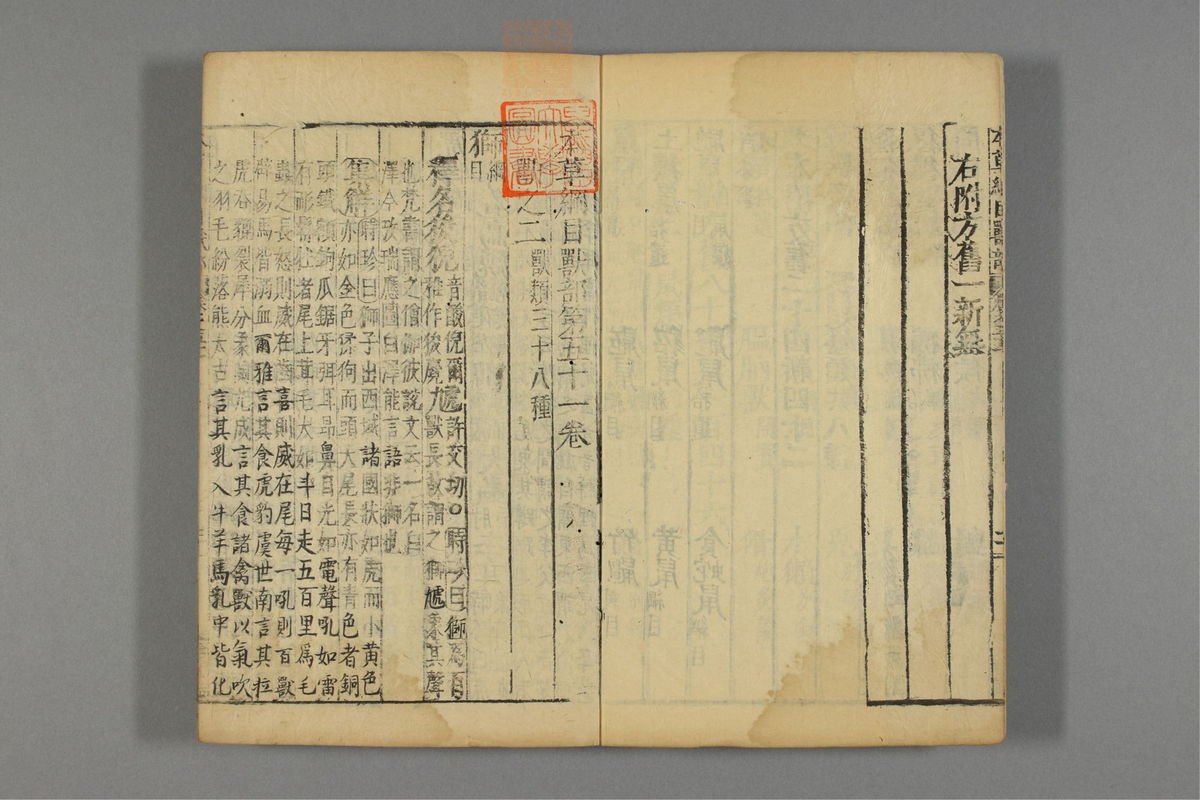 本草綱目獸部
右附方舊一新無
本草綱目獸部第五十一卷
獸之二獸類三十八種
獅綱目
釋名狻猊音酸倪爾雅作狻麑虓許交切○時珍曰獅為百獸長故謂之獅虓象其聲
也梵書謂之僧伽彼說文云一名白
澤今攷瑞應圖白澤能言語非獅也
集解時珍曰獅子出西域諸國狀如虎而小黃色
亦如金色猱狗而頭大尾長亦有青色者銅
頭鐵額鉤爪鋸牙弭耳昂鼻目光如電聲吼如雷
有耏髯牡者尾上茸毛大如斗日走五百里為毛
蟲之長怒則威在齒喜則威在尾每一吼則百獸
辟易馬皆溺血爾雅言其食虎豹虞世南言其拉
虎吞貔裂犀分象成言其食諸禽獸以氣吹
之羽毛紛落能太古言其乳入牛羊馬乳中皆化